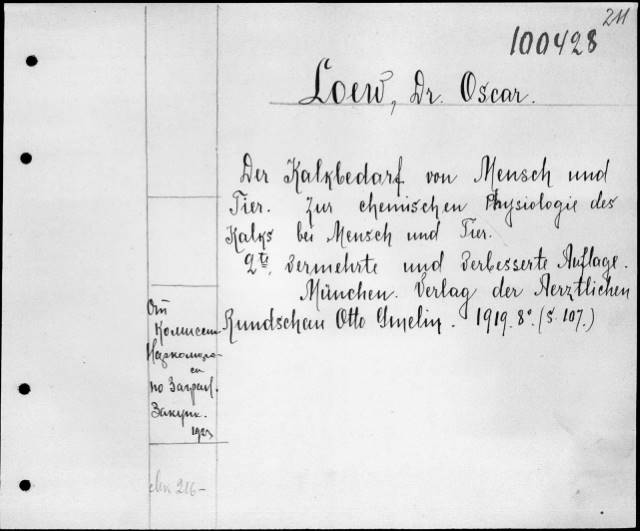 211
100428
Loew, Dr. Oscar.
Der Kalkbedarf von Mensch und
Tier. Zur chemischen Physiologie des
Kalks bei Mensch und Tier.
2te, vermehrte und verbesserte Auflage.
München. Verlag der Aerztlichen
Rundschau Otto Gmelin. 1919. 8°. (S. 107.)
От
Комиссии
по Загран.
Закупк.
1923
216-